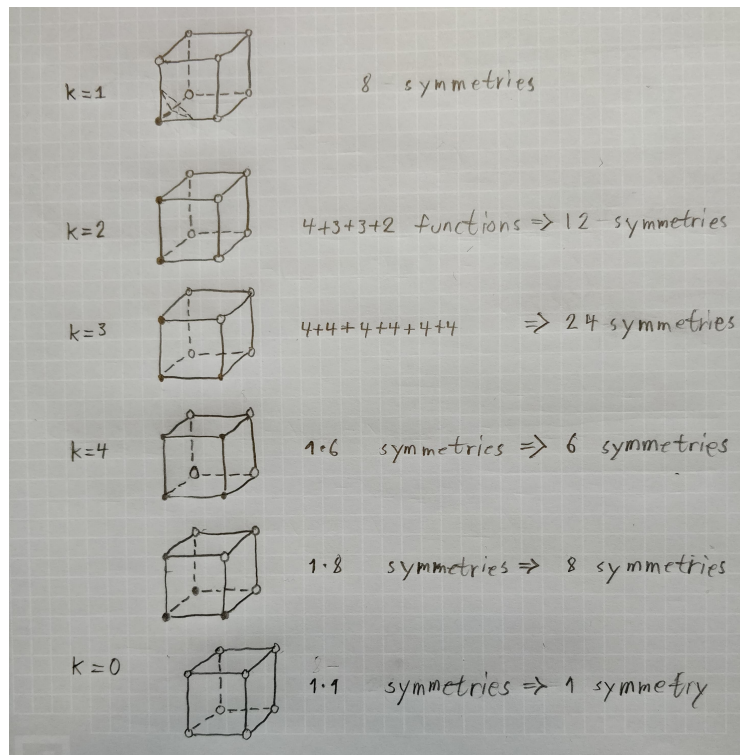 k=1 8 symmetries
k=2 4+3+3+2 functions => 12 symmetries
k=3 4+4+4+4+4+4 => 24 symmetries
k=4 1·6 symmetries => 6 symmetries
1·8 symmetries => 8 symmetries
k=0 1·1 symmetries => 1 symmetry